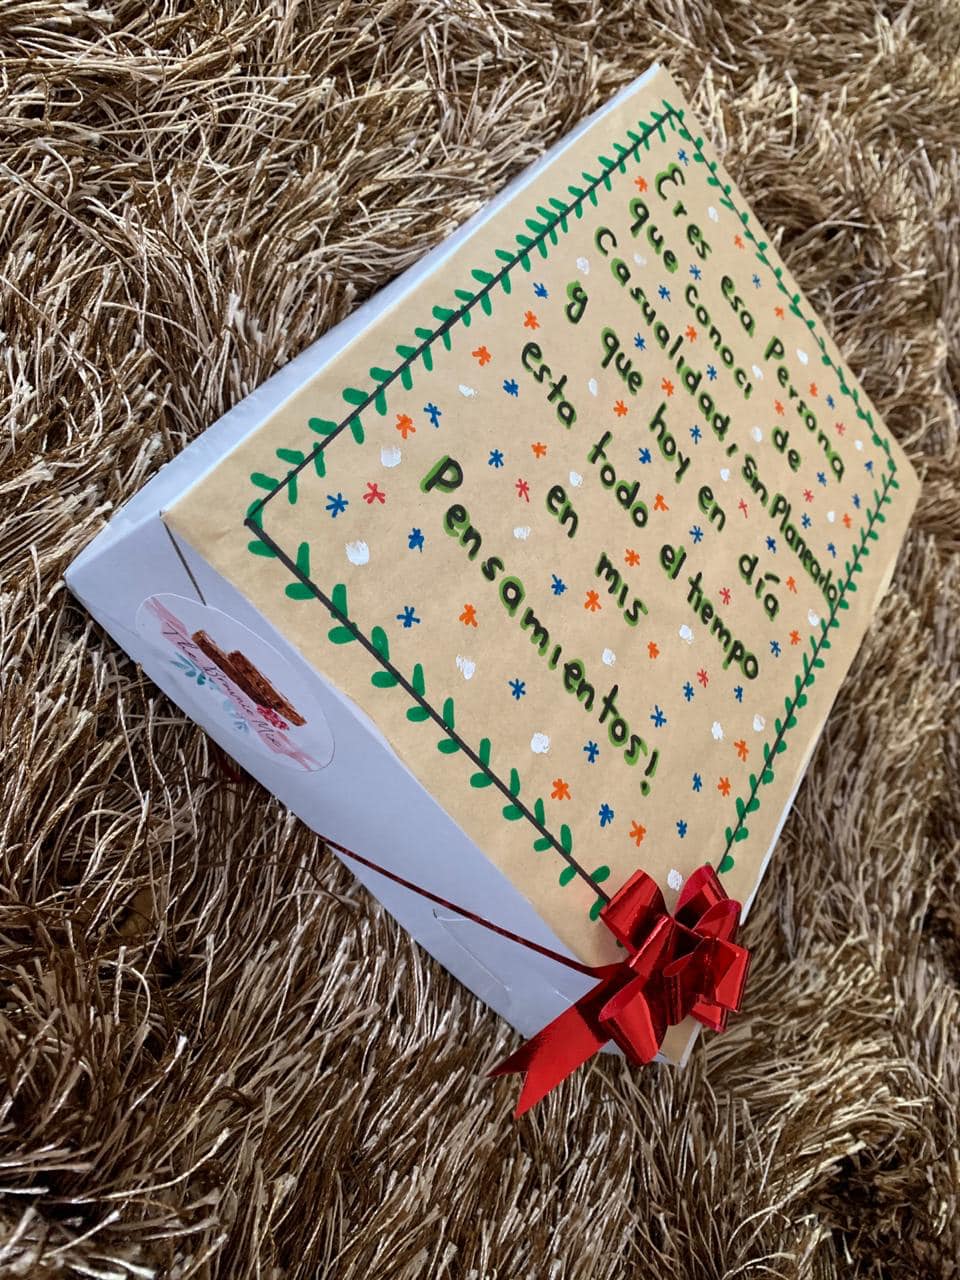 Eres esa Persona
que conoci de
casualidad, sin Planearlo
y que hoy en día
esta todo el tiempo
en mis
Pensamientos!
The Brownie Mix